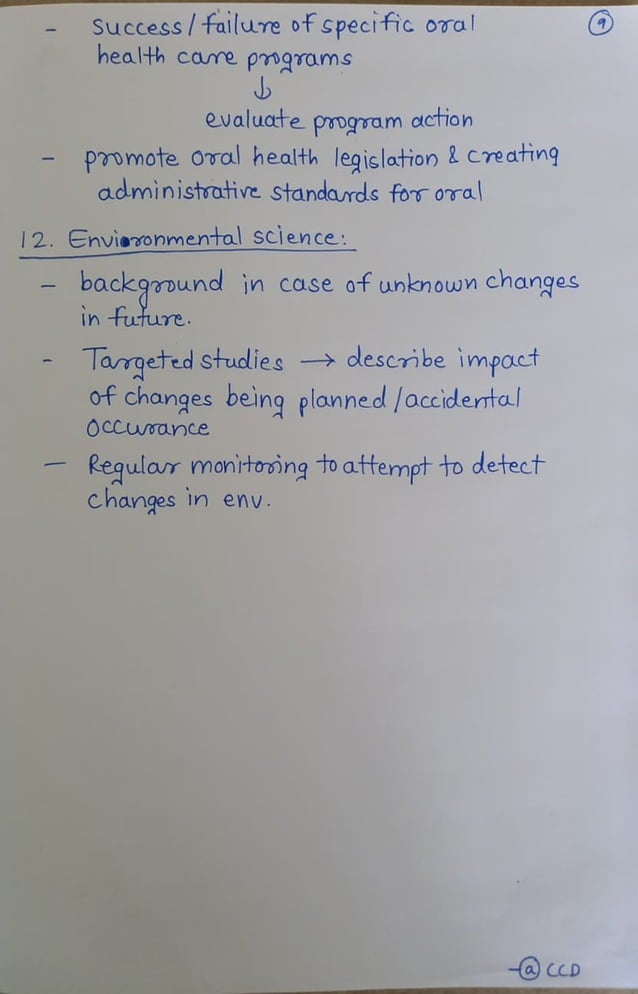 - success/failure of specific oral ⑨
health care programs
↓
evaluate program action
- promote oral health legislation & creating
administrative standards for oral
12. Envioronmental science:
- background in case of unknown changes
in future.
- Targeted studies → describe impact
of changes being planned/accidental
occurance
- Regular monitoring to attempt to detect
changes in env.
-@ CCD